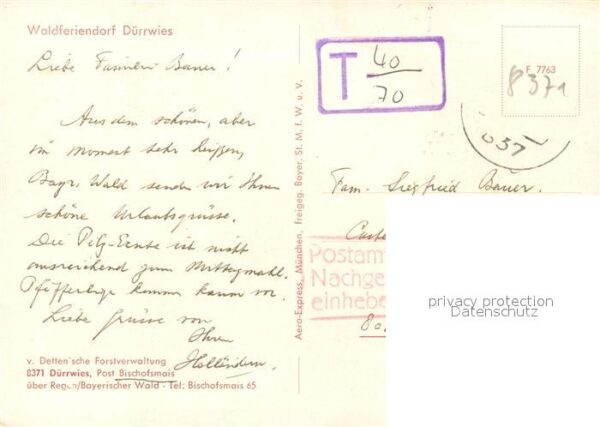 Waldferiendorf Dürrwies
Liebe Familie Bauer!
Aus dem schönen, aber
im Moment sehr heißen,
Bayr. Wald senden wir Ihnen
schöne Urlaubsgrüsse.
Die Pilz-Ernte ist nicht
ausreichend zum Mittagmahl.
Pfifferlinge kommen kaum vor.
Liebe Grüsse von
Ihren
Holländern.
v. Detten'sche Forstverwaltung
8371 Dürrwies, Post Bischofsmais
über Regen/Bayerischer Wald - Tel. Bischofsmais 65
Aero-Express, München, freigeg. Bayer. St. M. f. W. u. V.
T 40
70
F 7763
8371
837
Fam. Siegfried Bauer.
Postam
Nachge
einhebe
80
privacy protection
Datenschutz